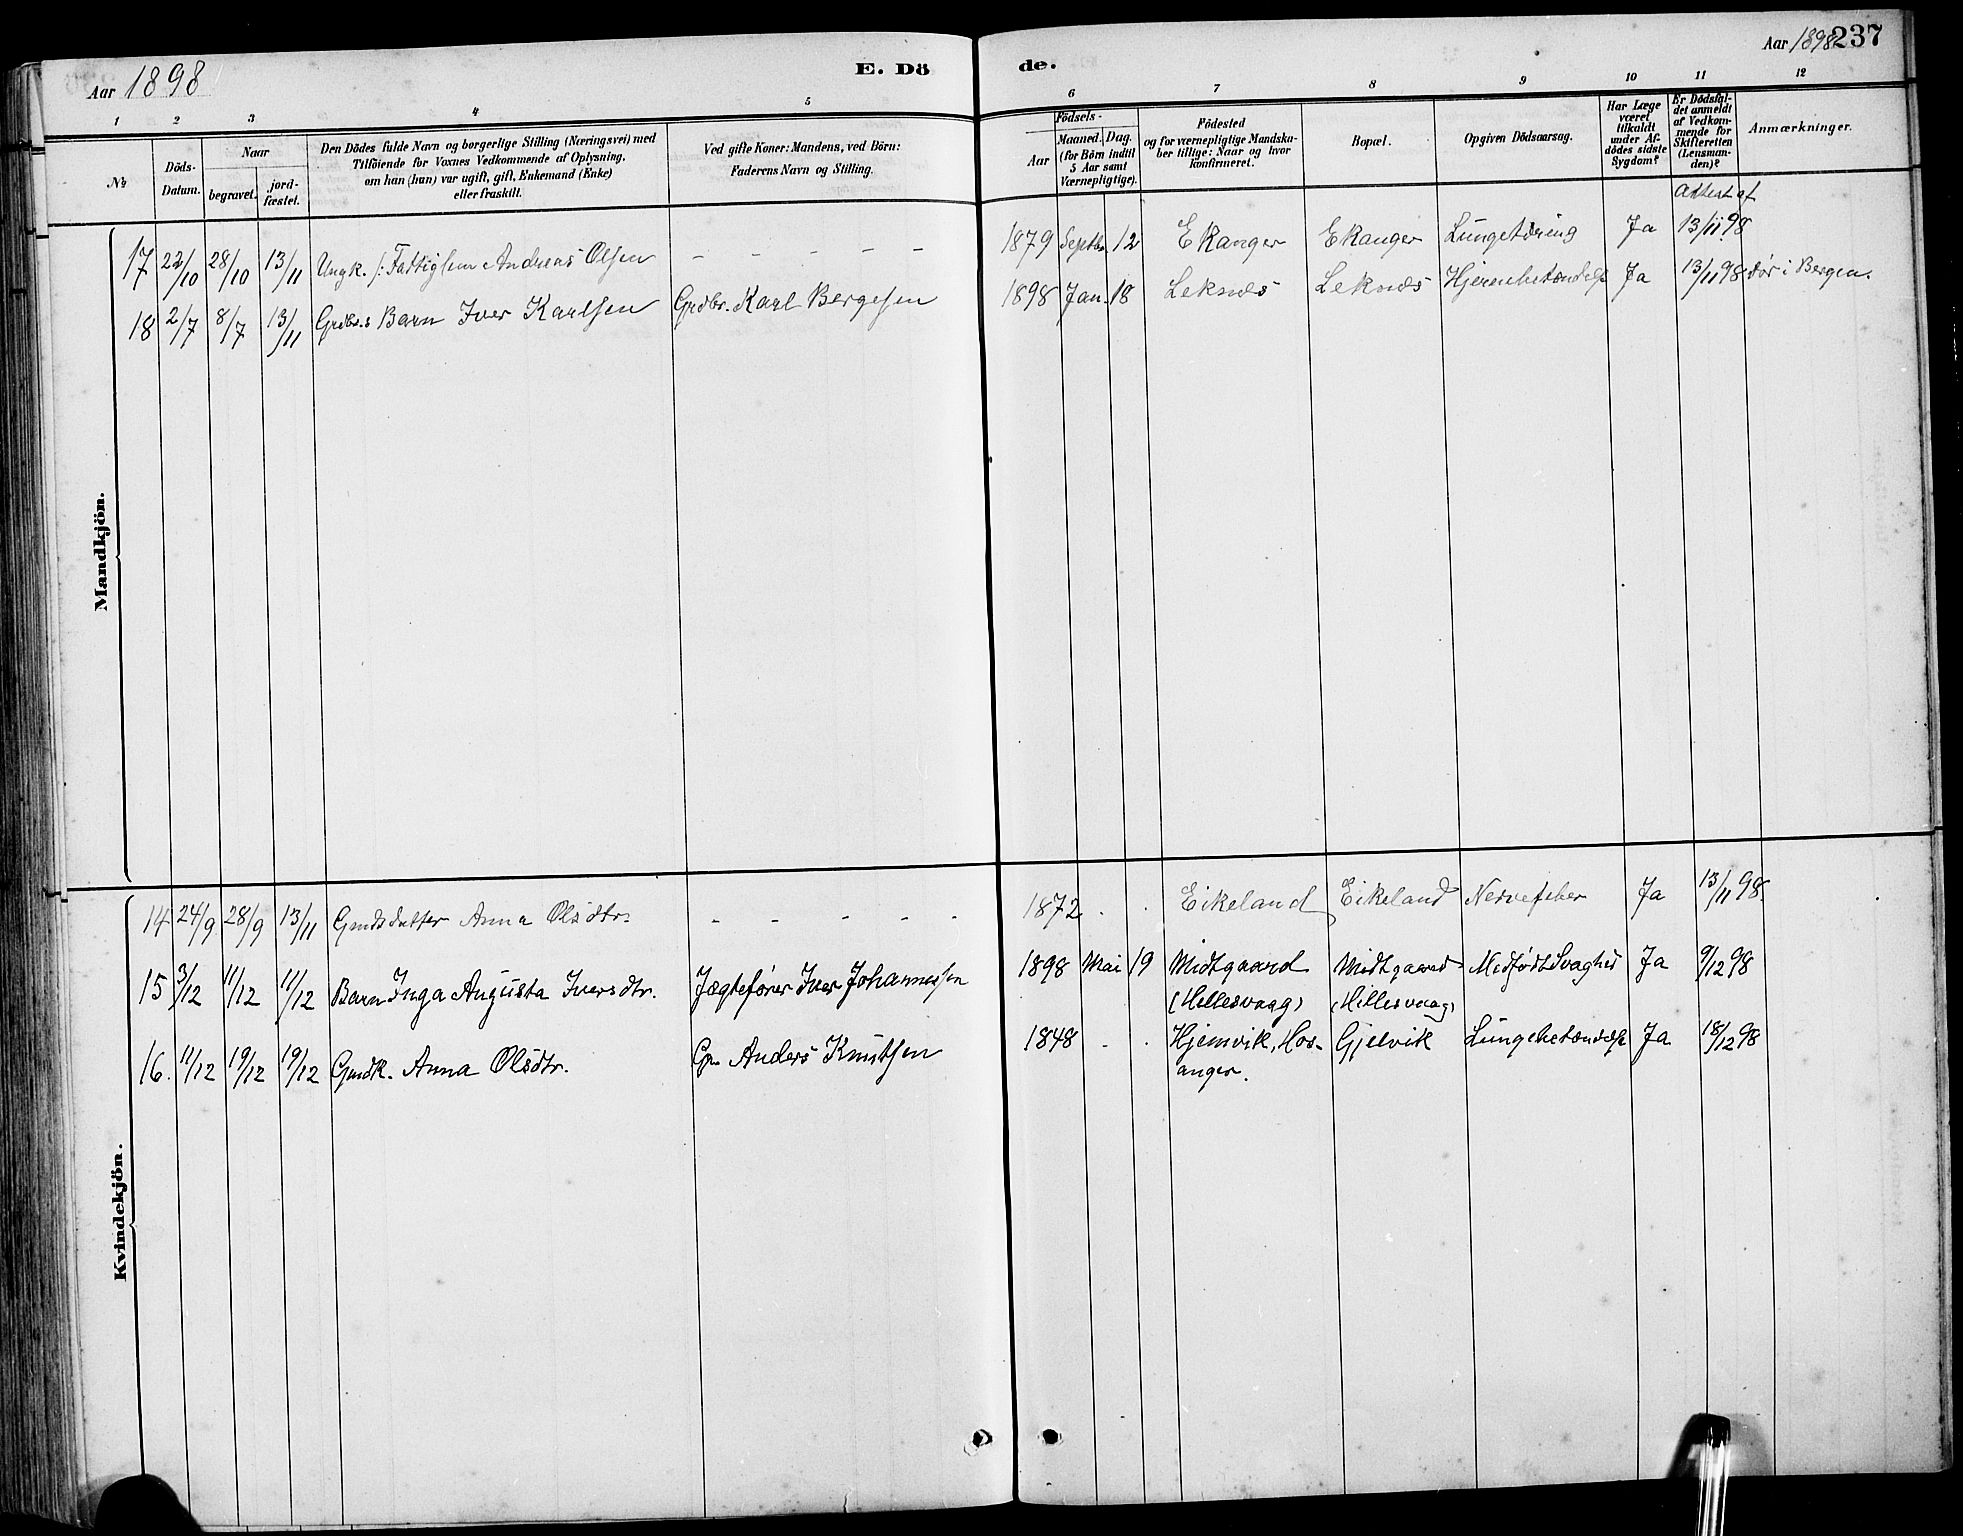 Aar 1898
E. Dö
de.
Aar 1898 237
1 2 3 4 5 6 7 8 9 10 11 12
No
Döds-Datum.
Naar
begravet.
jord-fæstet.
Den Dödes fulde Navn og borgerlige Stilling (Næringsvei) med
Tilföiende for Voxnes Vedkommende af Oplysning,
om han (hun) var ugift, gift, Enkemand (Enke)
eller fraskilt.
Ved gifte Koner: Mandens, ved Börn:
Faderens Navn og Stilling.
Födsels-
Aar
Maaned. Dag.
(for Börn indtil
5 Aar samt
Værnepligtige).
Födested
og for værnepligtige Mandska-
ber tillige: Naar og hvor
konfirmeret.
Bopæl.
Opgiven Dödsaarsag.
Har Læge
været
tilkaldt
under Af-
dödes sidste
Sygdom?
Er Dödsfal-
det anmeldt
af Vedkom-
mende for
Skifteretten
(Lensman-
den)?
Anmærkninger.
Attest af
Mandkjön.
17 22/10 28/10 13/11 Ungk. /: Fattiglem Andreas Olsen - - - - - 1879 Septbr. 12 Ekanger Ekanger Lungetæring Ja 13/11 98
18 2/7 8/7 13/11 Grdbr.s Barn Iver Karlsen Grdbr. Karl Bergesen 1898 Jan. 18 Leknes Leknes Hjernebetændelse Ja 13/11 98 dør i Bergen.
Kvindekjön.
14 24/9 28/9 13/11 Gmdsdatter Anna Olsdtr. - - - - - 1872 . . Eikeland Eikeland Nervefeber Ja 13/11 98.
15 3/12 11/12 11/12 Barn Inga Augusta Iversdtr. Jægtefører Iver Johannessen 1898 Mai 19 Midtgaard Midtgaard Medfødt Svaghed Ja 9/12 98
(Hillesvaag) (Hillesvaag)
16. 11/12 19/12 19/12 Gmdk. Anna Olsdtr. Gm Anders Knutsen 1848 . . Hjemvik, Hos- Gjelvik Lungebetændelse Ja 18/12 98
anger.